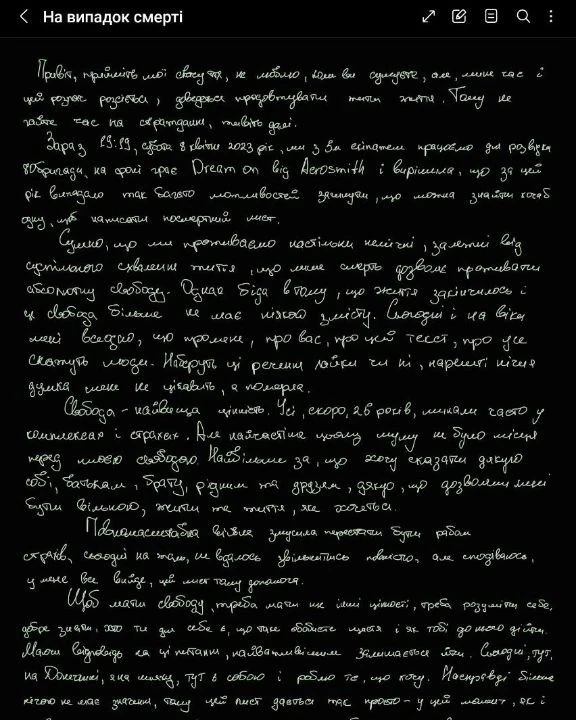 На випадок смерті
Привіт, прийміть мої співчуття, не люблю, коли ви сумуєте, але, мине час і
цей розпач розсіється, доведеться продовжувати жити життя. Тому не
гайте час на страждання, живіть далі.
Зараз 19:19, субота 8 квітня 2023 рік, ми з 3м екіпажем працюємо для розвідки
80бригади, на фоні грає Dream on від Aerosmith і вирішила, що за цей
рік випадало так багато можливостей загинути, що можна знайти хоча б
одну, щоб написати посмертний лист.
Сумно, що ми проживаємо настільки залежні від
суспільного схвалення життя, що лише смерть дозволяє проживати
абсолютну свободу. Однак біда в тому, що життя закінчилось і
ця свобода більше не має ніякого змісту. Сьогодні і на віки
мені всеодно, що про мене, про вас, про цей текст, про усе
скажуть люди. Наберуть ці речення лайки чи ні, нарешті нічия
думка мене не цікавить, я померла.
Свобода - найвища цінність. Усі, скоро, 26 років, минали часто у
комплексах і страхах. Але найчастіше цьому шуму не було місця
перед моєю свободою. Найбільше за, що хочу сказати дякую
собі, батькам, брату, рідним та друзям, дякую, що дозволили мені
бути вільною, жити те життя, яке хочеться.
Повномасштабна війна змусила перестати бути рабом
страхів, сьогодні на жаль, не вдалось звільнитись повністю, але сподіваюсь,
у мене все вийде, цей лист тому допомога.
Щоб мати свободу, треба мати ще інші цінності, треба розуміти себе,
добре знати, хто ти для себе є, що таке особисте щастя і як тобі до нього дійти.
Маючи відповідь на ці питання, найважливішим залишається йти. Сьогодні, тут,
на Донеччині, я на шляху, тут я собою і роблю те, що хочу. Насправді більше
нічого не має значення, тому цей лист дається так просто - у цей момент, як і